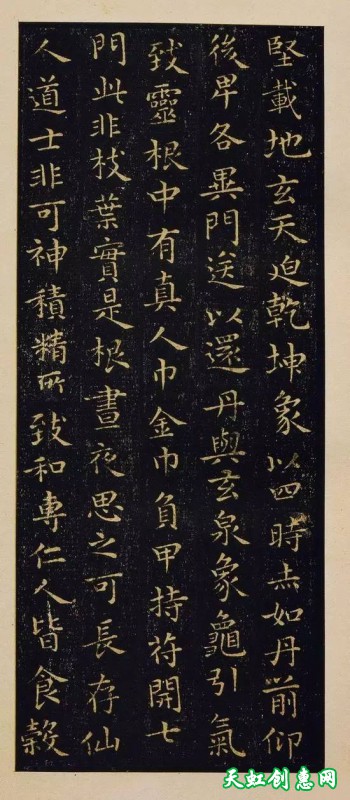 堅載地玄天迫乾坤象以四時赤如丹前仰
後卑各異門送以還丹與玄泉象龜引氣
致靈根中有真人巾金巾負甲持苻開七
門此非枝葉實是根晝夜思之可長存仙
人道士非可神積精所致和專仁人皆食穀
天虹创惠网